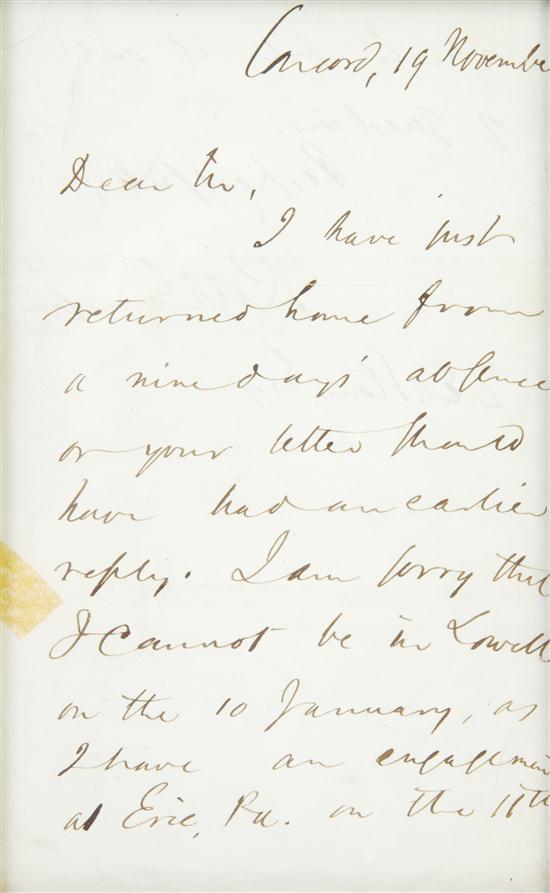 Concord, 19 Novembe
Dear Sir,
I have just
returned home from
a nine days' absence
or your letter should
have had an earlier
reply. I am sorry that
I cannot be in Lowell
on the 10 January, as
I have an engagemen
at Erie, Pa. on the 11th